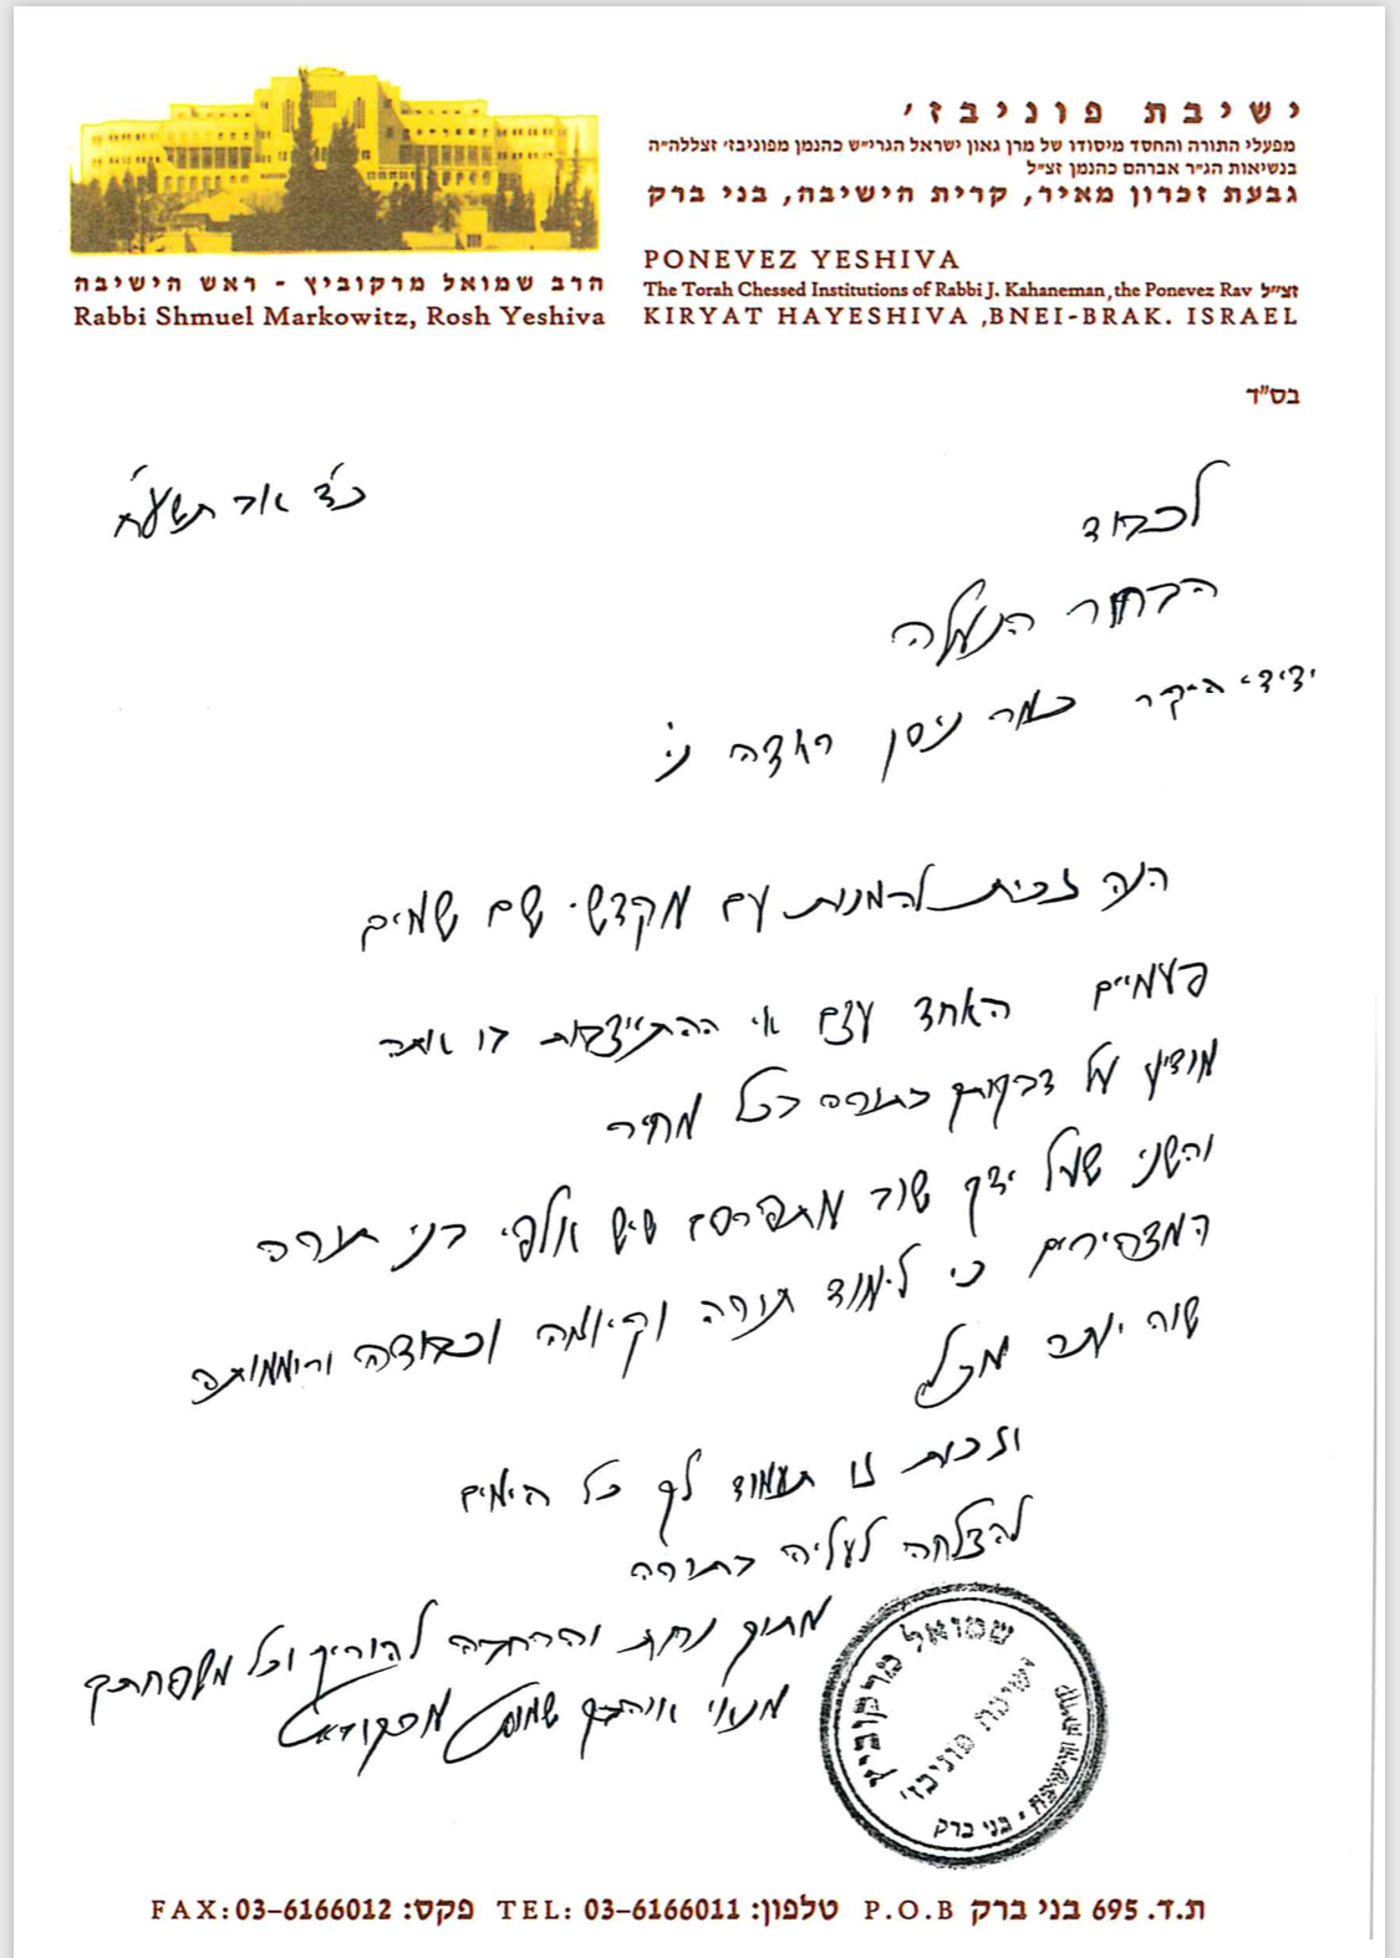 ישיבת פוניבז׳
מפעלי התורה והחסד מיסודו של מרן גאון ישראל הגרי״ש כהנמן מפוניבז׳ זצללה״ה
בנשיאות הג״ר אברהם כהנמן זצ״ל
גבעת זכרון מאיר, קרית הישיבה, בני ברק
הרב שמואל מרקוביץ - ראש הישיבה
Rabbi Shmuel Markowitz, Rosh Yeshiva
PONEVEZ YESHIVA
The Torah Chessed Institutions of Rabbi J. Kahaneman, the Ponevez Rav זצ״ל
KIRYAT HAYESHIVA ,BNEI-BRAK. ISRAEL
בס"ד
כ"ד אדר תשע"ח
לכבוד
הבחור הנעלה
ידידי היקר כמר ניסן ני'
הנה זכית להמנות עם מקדשי שם שמים
פעמיים האחד עצם אי ההתייצבות בו אתה
מודיע על דבקותך בתורה בכל מחיר
והשני שעל ידך שוב מתפרסם שיש אלפי בני תורה
המצהירים כי לימוד תורה וקיומה וכבודה ורוממותה
שוה יותר מכל
וזכות זו תעמוד לך כל הימים
להצלחה לעליה בתורה
מתוך נחת והרחבה להוריך וכל משפחתך
מנאי אוהבך שמואל מרקוביץ
שמואל מרקוביץ
ישיבת פוניבז'
קרית הישיבה • בני ברק
ת.ד. 695 בני ברק P.O.B טלפון: 03-6166011 :TEL פקס: 03-6166012 :FAX